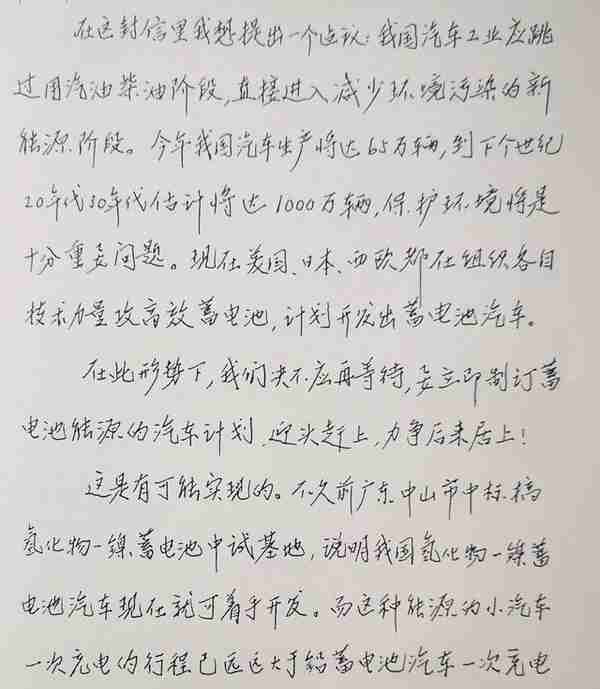 在这封信里我想提出一个建议：我国汽车工业应跳
过用汽油柴油阶段，直接进入减少环境污染的新
能源阶段。今年我国汽车生产将达65万辆，到下个世纪
20年代30年代估计将达1000万辆，保护环境将是
十分重要问题。现在美国、日本、西欧都在组织各自
技术力量攻高效蓄电池，计划开发出蓄电池汽车。
在此形势下，我们决不应再等待，要立即制订蓄
电池能源的汽车计划，迎头赶上，力争后来居上！
这是有可能实现的。不久前广东中山市中标搞
氢化物-镍蓄电池中试基地，说明我国氢化物-镍蓄
电池汽车现在就可着手开发。而这种能源的小汽车
一次充电的行程已远远大于铅蓄电池汽车一次充电